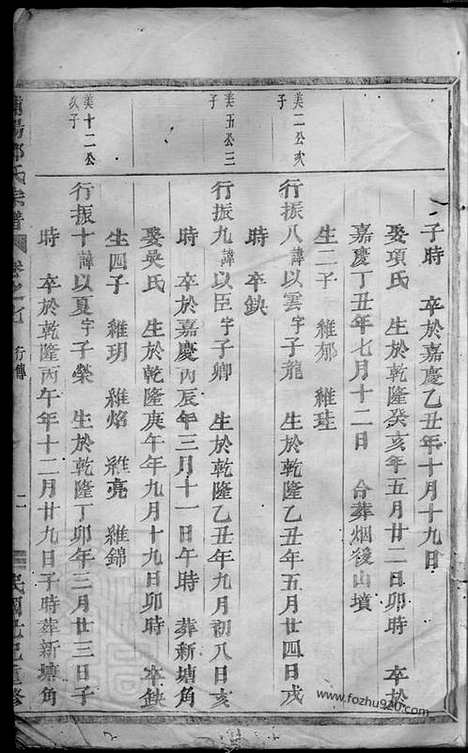 子時　卒於嘉慶乙丑年十月十九日
娶項氏　生於乾隆癸亥年五月廿二日卯時　卒於
嘉慶丁丑年七月十二日　合葬烟後山墳
生二子　維郁　維琺
美二公次子
行振八諱以雲字子龍　生於乾隆乙丑年五月廿四日戌
時　卒缺
美五公三子
行振九諱以臣字子卿　生於乾隆乙丑年九月初八日亥
時　卒於嘉慶丙辰年三月十一日午時　葬新塘角
娶吳氏　生於乾隆庚午年九月十九日卯時　卒缺
生四子　維玥　維焰　維亮　維錦
美十二公次子
行振十諱以夏字子榮　生於乾隆丁卯年三月廿三日子
時　卒於乾隆丙午年十二月廿九日子時葬新塘角
氏宗譜　卷之七　行傳　二　民國
www.fozhu920.com